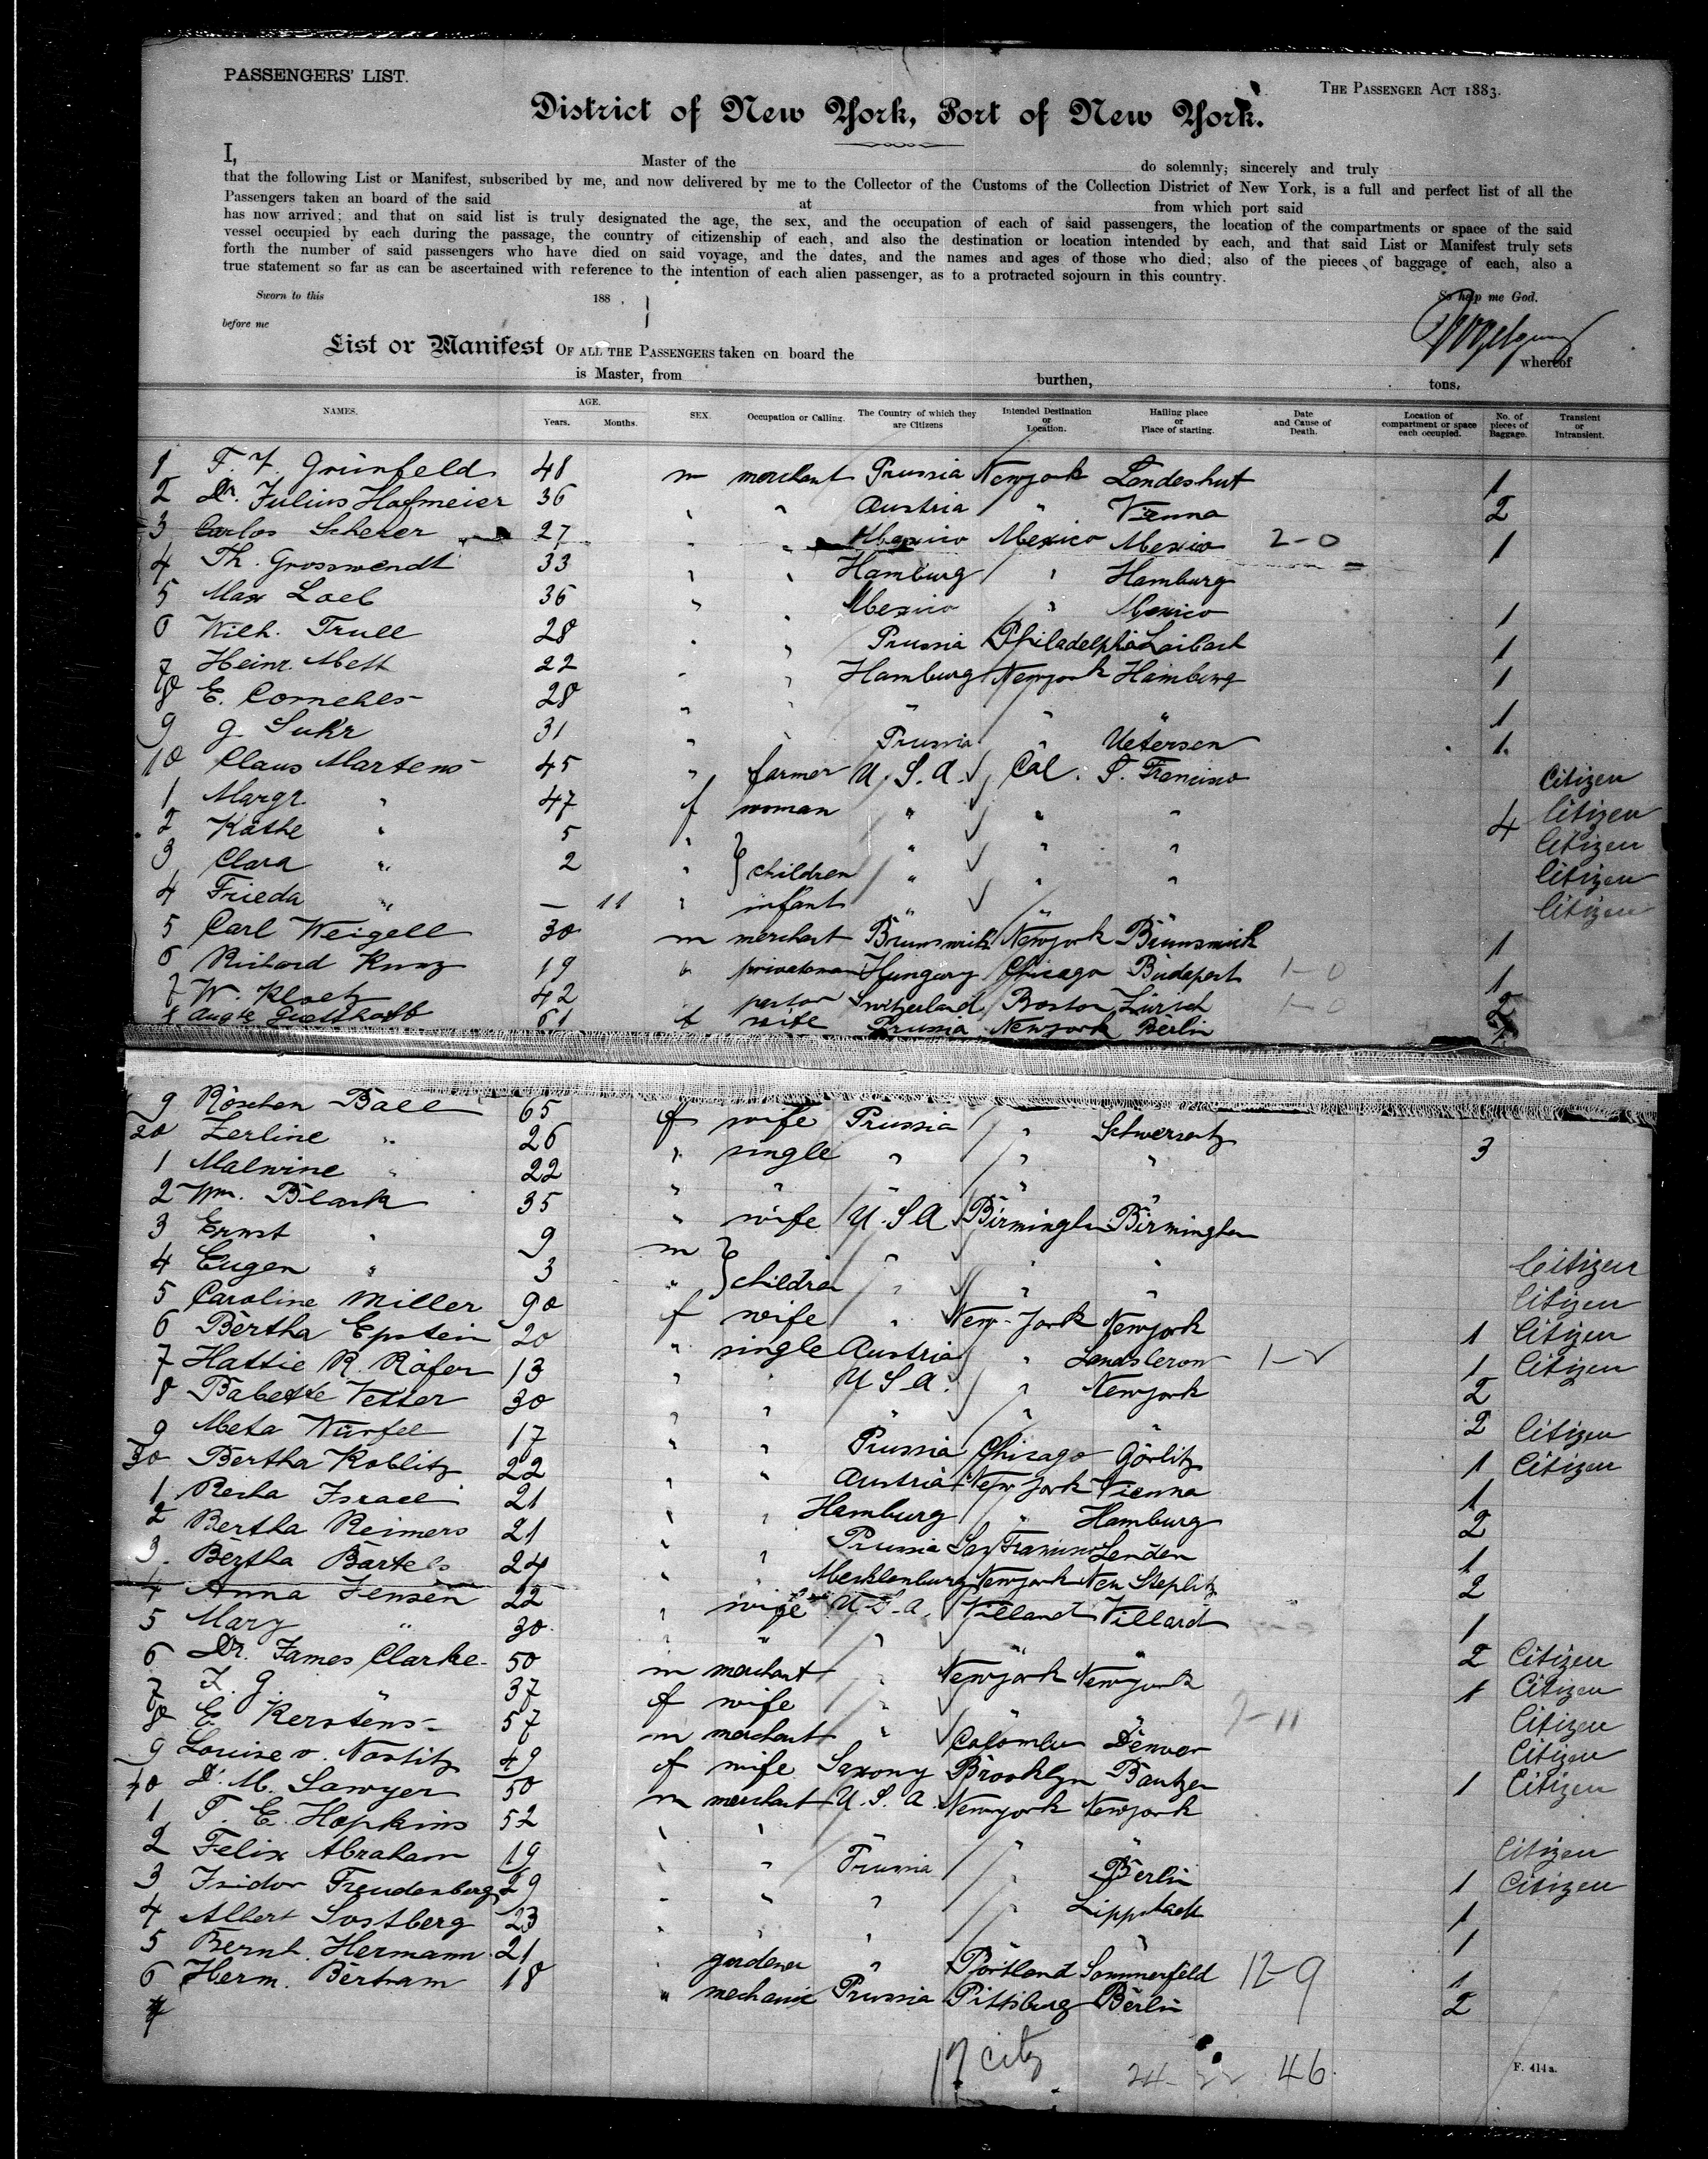 PASSENGERS' LIST.
THE PASSENGER ACT 1883.
District of New York, Port of New York.
I, Master of the do solemnly; sincerely and truly
that the following List or Manifest, subscribed by me, and now delivered by me to the Collector of the Customs of the Collection District of New York, is a full and perfect list of all the
Passengers taken an board of the said at from which port said
has now arrived; and that on said list is truly designated the age, the sex, and the occupation of each of said passengers, the location of the compartments or space of the said
vessel occupied by each during the passage, the country of citizenship of each, and also the destination or location intended by each, and that said List or Manifest truly sets
forth the number of said passengers who have died on said voyage, and the dates, and the names and ages of those who died; also of the pieces of baggage of each, also a
true statement so far as can be ascertained with reference to the intention of each alien passenger, as to a protracted sojourn in this country.
Sworn to this 188 . So help me God.
before me
List or Manifest OF ALL THE PASSENGERS taken on board the whereof
is Master, from burthen, tons,
NAMES. AGE. Years. Months. SEX. Occupation or Calling. The Country of which they are Citizens Intended Destination or Location. Hailing place or Place of starting. Date and Cause of Death. Location of compartment or space each occupied. No. of pieces of Baggage. Transient or Intransient.
1 F. V. Grünfeld 48 m merchant Prussia Newyork Landeshut 1
2 Dr. Julius Hofmeier 36 " " Austria " Vienna 2
3 Carlos Scherer 27 " " Mexico Mexico Mexico 2-0 1
4 Th. Grosswendt 33 " " Hamburg " Hamburg
5 Max Loeb 36 " " Mexico " Mexico 1
6 Wilh. Trull 28 " " Prussia Philadelphia 1
7 Heinr. Mett 22 " " Hamburg Newyork Hamburg 1
8 E. Cornehls 28 " " " " " 1
9 G. Suhr 31 " " Prussia " Uetersen 1
10 Claus Martens 45 " farmer U. S. A. Cal. S. Francisco Citizen
1 Margr. " 47 f woman " " " 4 Citizen
2 Käthe " 5 " children " " " Citizen
3 Clara " 2 " " " " Citizen
4 Frieda " — 11 " infant " " " Citizen
5 Carl Weigell 30 m merchant Brunswick Newyork Brunswick 1
6 Richard Kunz 19 " Hungary Chicago Budapest 1-0 1
7 W. Kloetz 42 pastor Switzerland Boston Zürich 1-0 2
8 Augte 61 f wife Prussia Newyork Berlin
9 Röschen Ball 65 f wife Prussia " Schwersenz
20 Zerline " 26 " single " " " 3
1 Malwine " 22 " " " " "
2 Wm. Blank 35 " wife U. S. A Birmingham Birmingham
3 Ernst " 9 m children " " " Citizen
4 Eugen " 3 " " " " Citizen
5 Caroline Miller 90 f wife " New-York Newyork 1 Citizen
6 Bertha Epstein 20 " single Austria " Landskron 1 Citizen
7 Hattie R. Röfer 13 " " U S A. " Newyork 2
8 Babette Vetter 30 " " " " " 2 Citizen
9 Meta Würfel 17 " " Prussia Chicago Görlitz 1 Citizen
30 Bertha Koblitz 22 " " Austria New York Vienna 1
1 Recha Israel 21 " " Hamburg " Hamburg 2
2 Bertha Reimers 21 " " Prussia San Francisco Lenden 1
3 Bertha Bartels 24 " " Mecklenburg Newyork Neu Streplitz 2
4 Anna Jensen 22 " wife U. S. A. Villard Villard 1
5 Mary " 30 " " " " " 2 Citizen
6 Dr. James Clarke 50 m merchant " Newyork Newyork 1 Citizen
7 J. G. " 37 f wife " " " Citizen
8 E. Kerstens 57 m merchant " Columbu Denver Citizen
9 Louise v. Nostitz 49 f wife Saxony Brooklyn Bautzen 1 Citizen
40 D. M. Sawyer 50 m merchant U. S. A. Newyork Newyork
1 T. E. Hopkins 52 " " " " " Citizen
2 Felix Abraham 19 " " Prussia " Berlin 1 Citizen
3 Isidor Freudenberg 29 " " " " Lippstadt 1
4 Albert Sostberg 23 " " " " " 1
5 Bernh. Hermann 21 " gardener " Portland Sommerfeld 12-9 1
6 Herm. Bertram 18 " mechanic Prussia Pittsburg Berlin 2
7
17 City 24 22 46
F. 414 a.